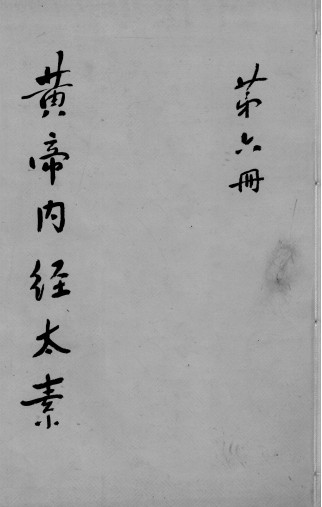 第六冊
黄帝内経太素